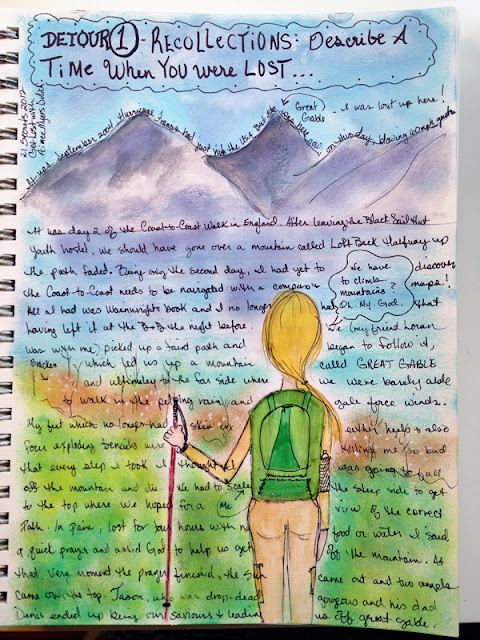 DETOUR 1 - RECOLLECTIONS: Describe A
Time When You Were Lost...
21 Secrets 2017
Get Lost with
It was September 2004. Hurricane had just hit the USA but
on this day, blowing 60mph gusts
Great
Gable
- I was lost up here!
It was day 2 of the Coast-to-Coast Walk in England. After leaving the Black Sail Hut
youth hostel, we should have gone over a mountain called Loft Beck. Halfway up
the path faded. Being only the second day, I had yet to discover
the Coast-to-Coast needs to be navigated with a compass maps!
We have
to climb
mountains?
Oh. My. God.
All I had was Wainwright's book and I no longer had that
having left it at the B&B the night before. We (my friend
was with me) picked up a faint path and began to follow it,
which led us up a mountain called GREAT GABLE
and ultimately to the far side where we were barely able
to walk in the pelting rain and gale force winds.
My feet which no longer had skin on either heels & also
four exploding toenails were killing me so bad
that every step I took I thought I was going to fall
off the mountain and die. We had to scale the steep side to get
to the top where we hoped for a view of the correct
Me
path. In pain, lost for four hours with no food or water I said
a quick prayer and asked God to help us get off the mountain. At
that very moment the prayer finished, the sun came out and two angels
came over the top. Jason, who was drop-dead gorgeous and his dad
Denis ended up being our saviours & leading us off great gable.